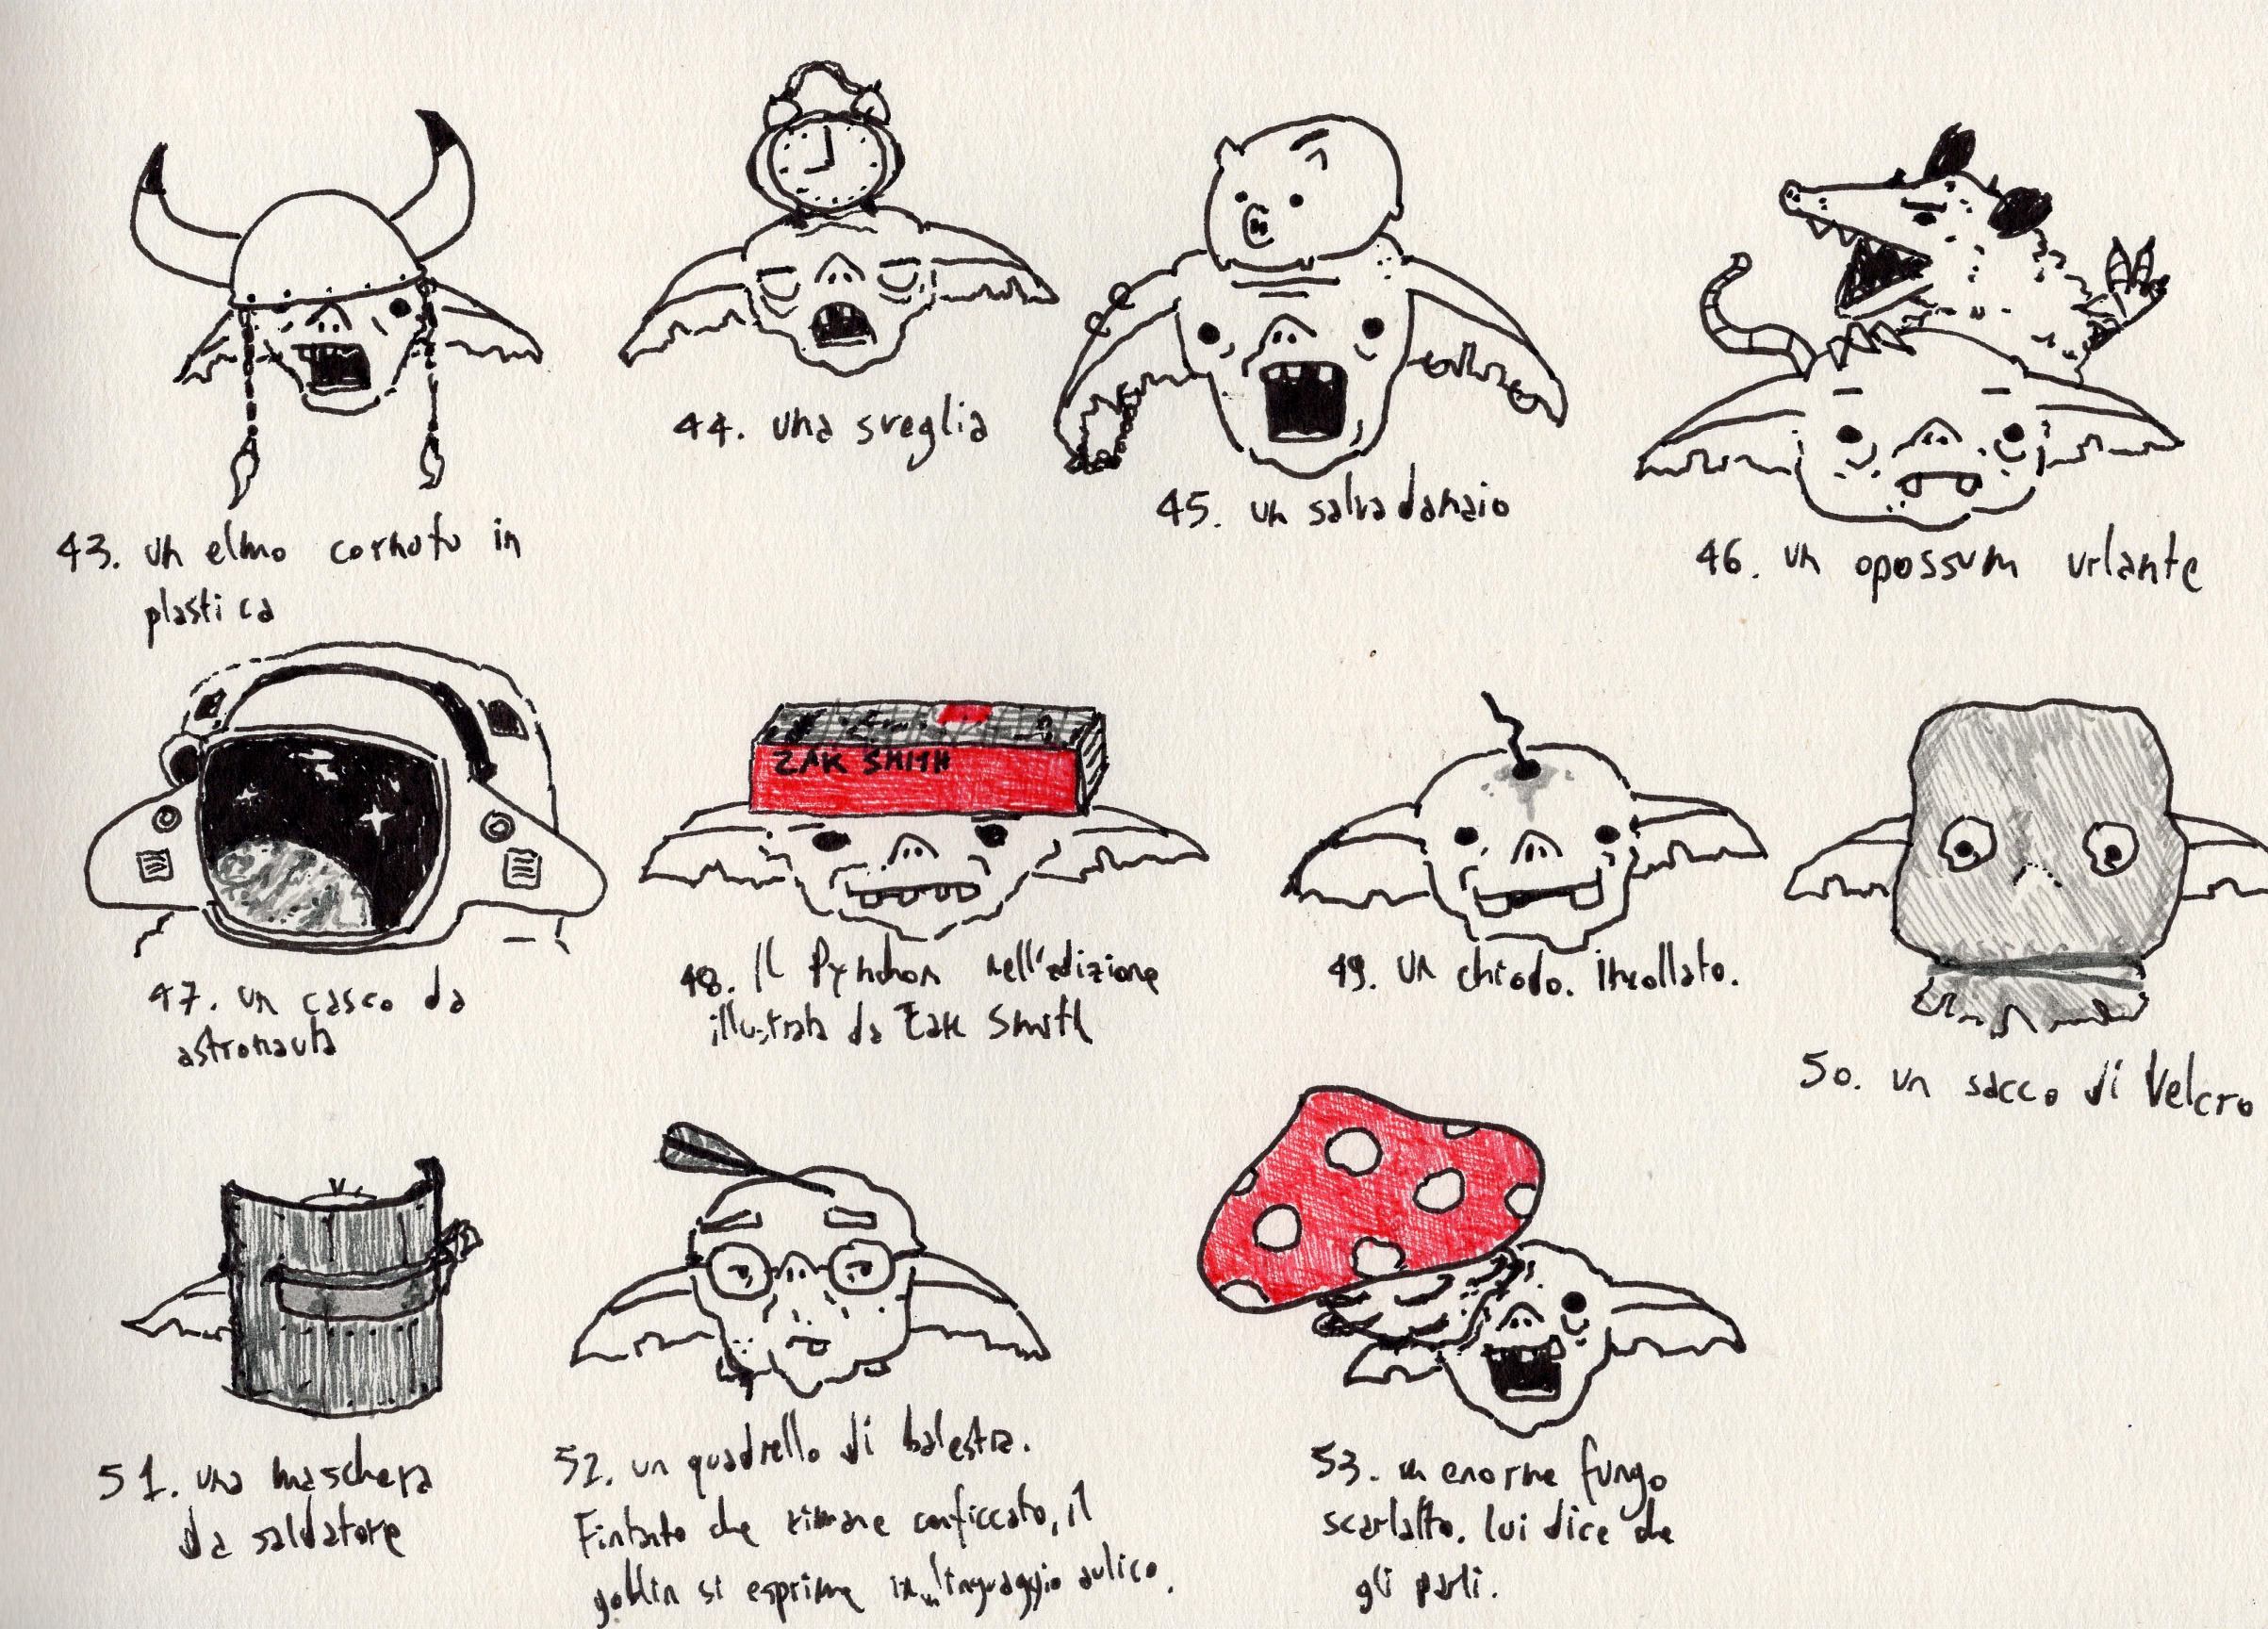 43. un elmo cornuto in
plastica
44. una sveglia
45. un salvadanaio
46. un opossum urlante
47. un casco da
astronauta
ZAK SMITH
48. Il Pynchon nell'edizione
illustrata da Zak Smith
49. un chiodo. Incollato.
50. un sacco di Velcro
51. una maschera
da saldatore
52. un quadrello di balestra.
Fintanto che rimane conficcato, il
goblin si esprime in linguaggio aulico.
53. un enorme fungo
scarlatto. lui dice che
gli parli.